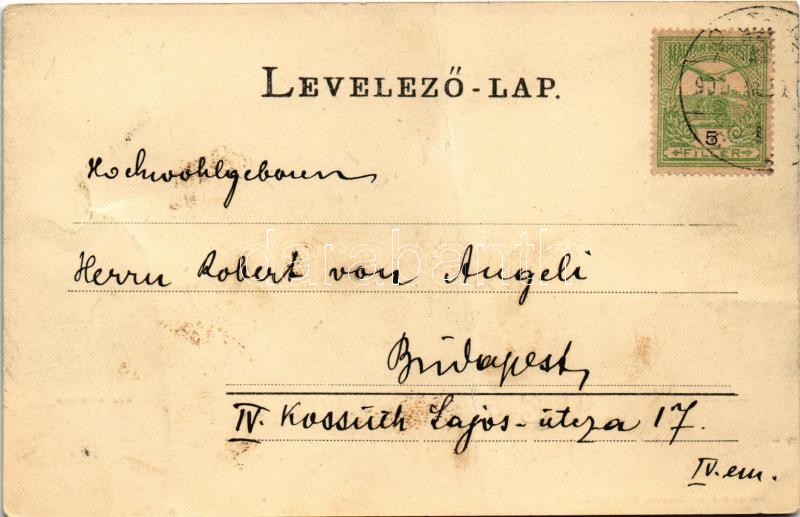 LEVELEZŐ-LAP.
5
FILLÉR
Hochwohlgeboren
Herrn Robert von Angeli
Budapest,
IV. Kossuth Lajos-utcza 17.
IV. em.
darabanth